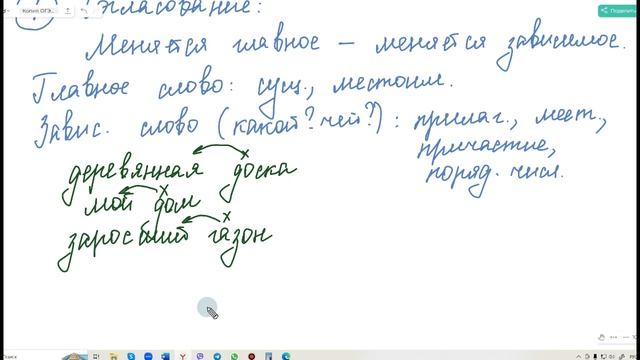 Копия ОГЭ...
Поделить
Согласование:
Меняется главное – меняется зависимое.
Главное слово: сущ., местоим.
Завис. слово (какой? чей?): прилаг., мест.,
причастие,
поряд. числ.
деревянная доска
мой дом
заросший газон
Поиск